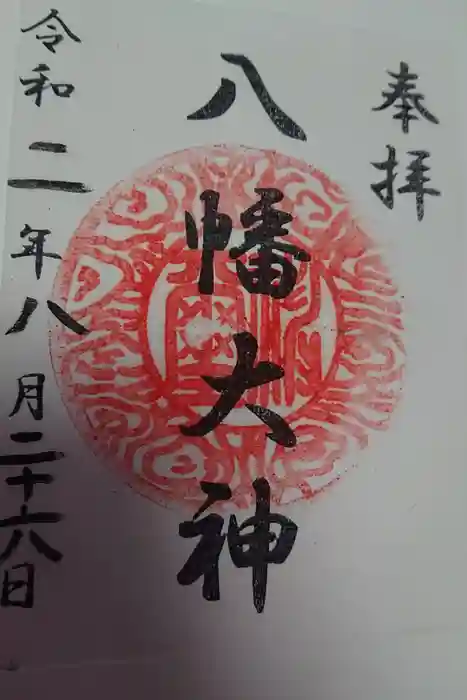 奉拝
八幡大神
令和二年八月二十六日